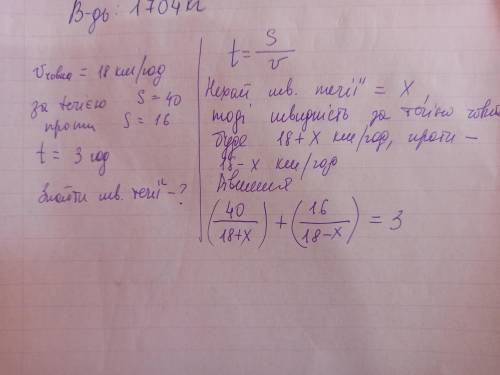 В-дь: 1704 кг
v човна = 18 км/год
за течією S = 40
проти S = 16
t = 3 год
Знайти шв. течії - ?
t = S/v
Нехай шв. течії = x,
тоді швидкість за течією човна
буде 18+x км/год, проти –
18-x км/год
Рівняння
(40/(18+x)) + (16/(18-x)) = 3